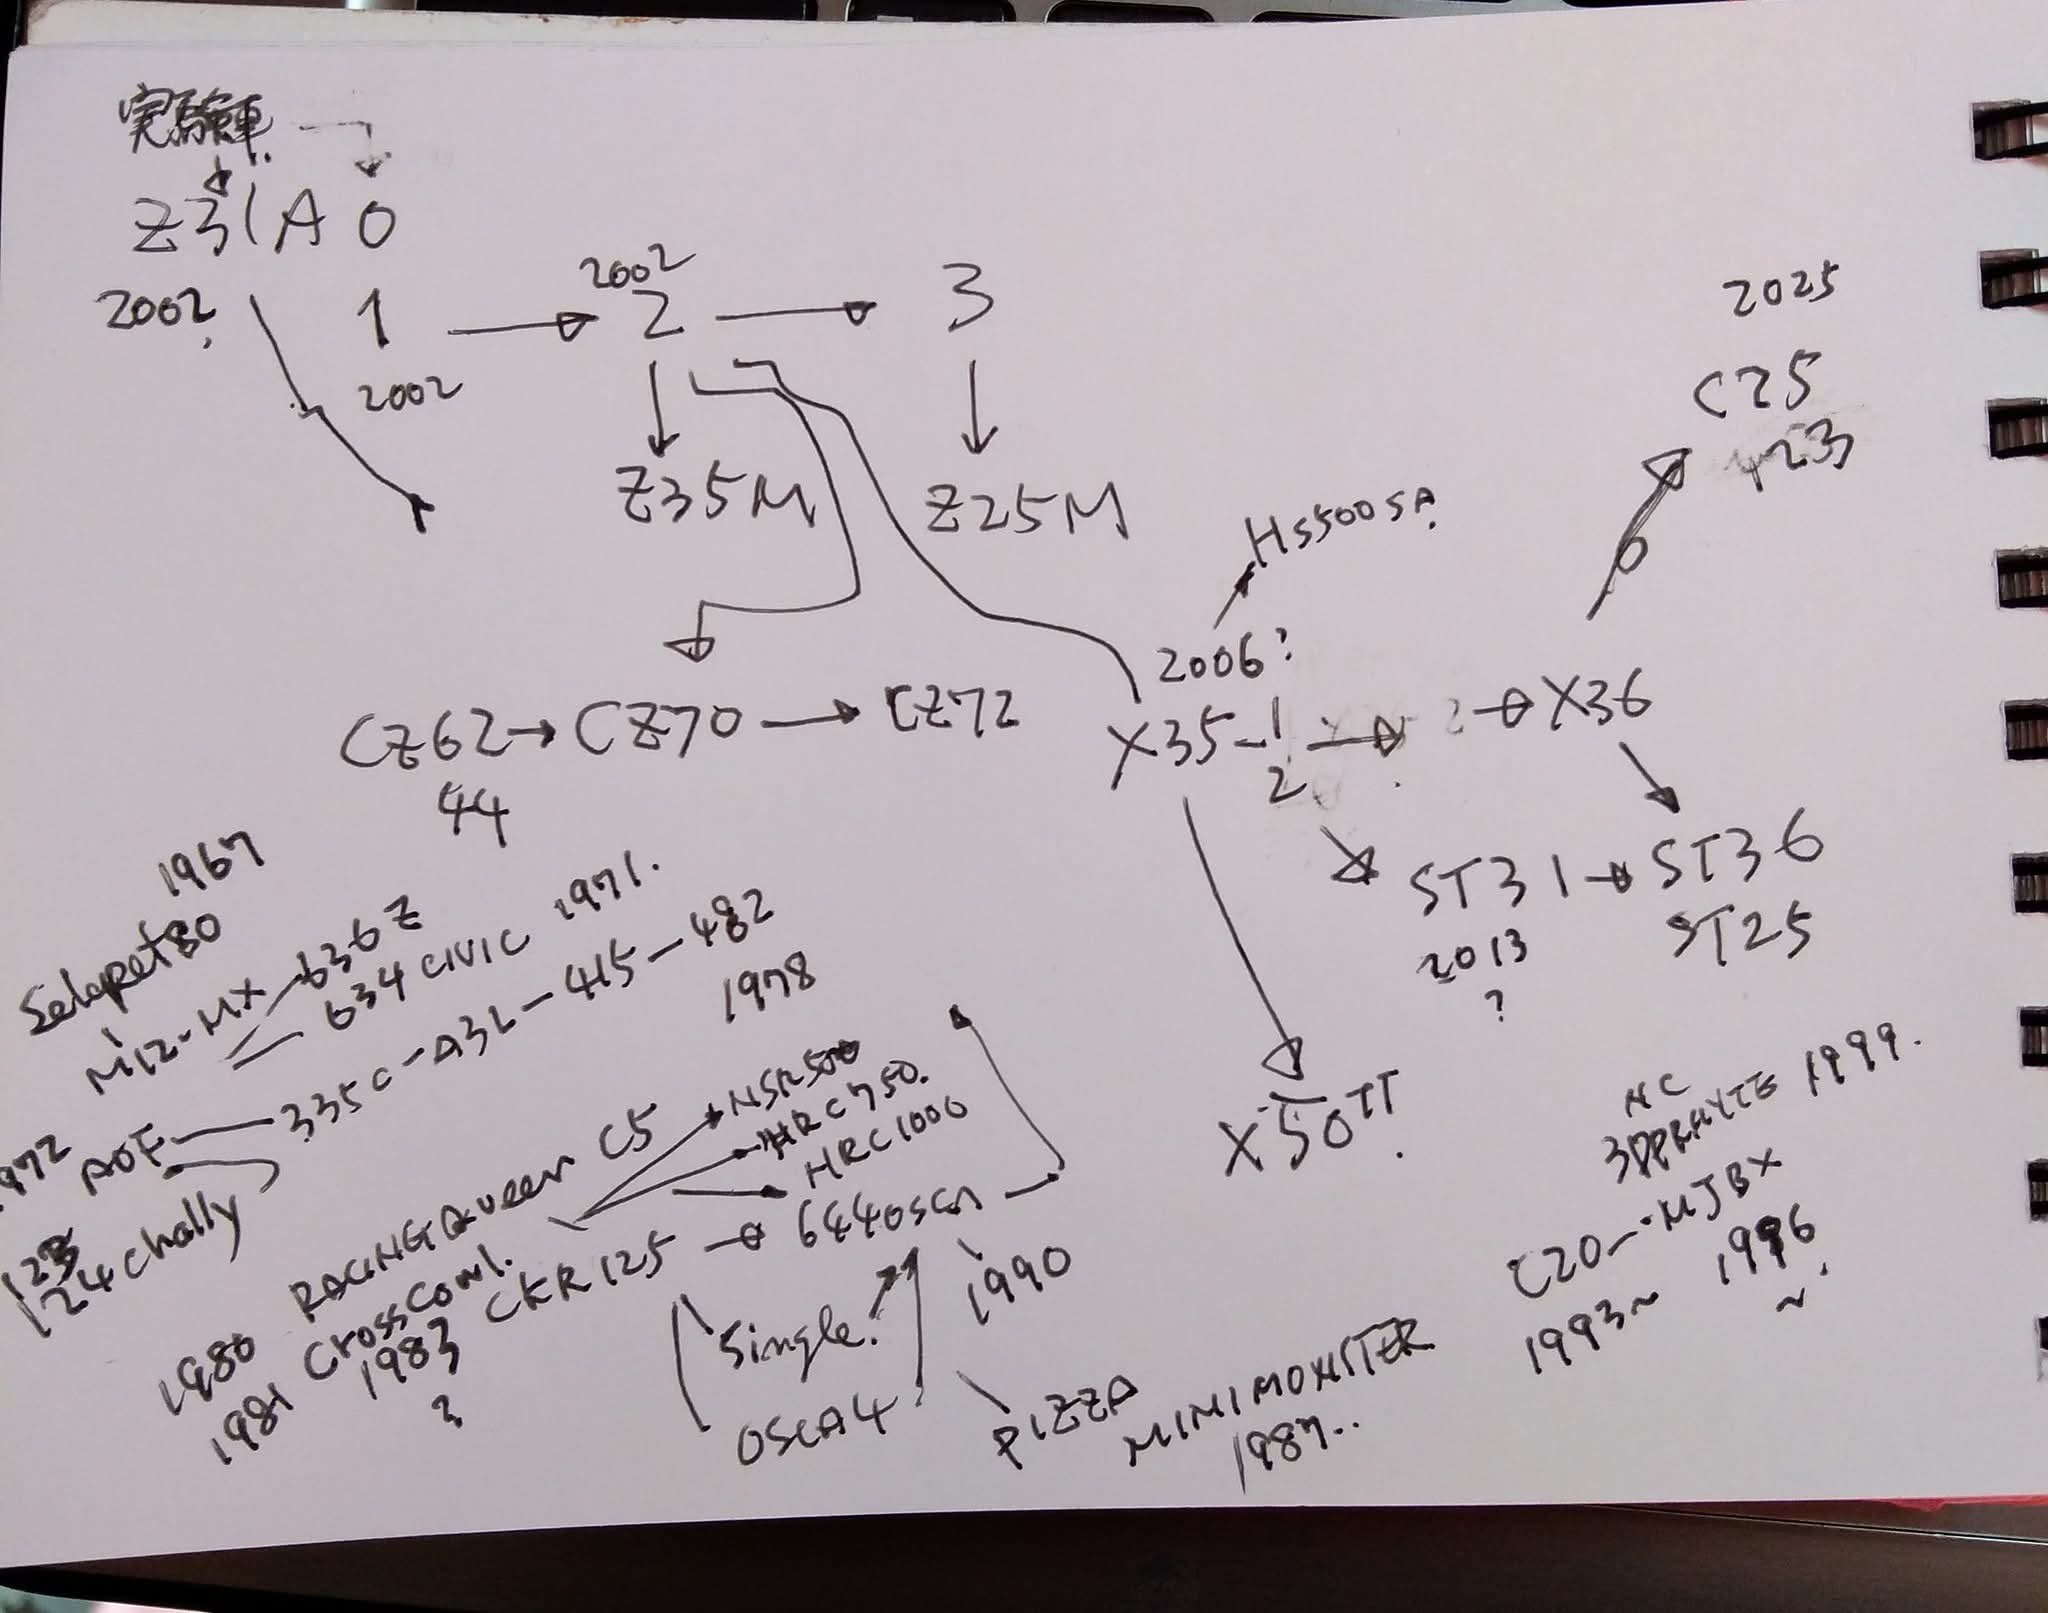 実験車
Z31A 0
2002? 1 → 2 → 3
2002
2002
Z35M
Z25M
2025
C25
23
HS500SA?
2006?
CZ62 → CZ70 → CZ72
44
X35-1 → → X36
2
ST31 → ST36
ST25
2013
?
X50TT
1967
M12-MX-636Z
634 CIVIC 1971.
335C-A3L-415-482
1978
AOF
124 chally
1980 RACING Queen C5
NSR500
HRC750.
HRC1000
1981 Crosscowl.
1983
?
CKR125 → 644OSCA
1990
Single.
OSCA4
PIZZA
MINIMONSTER
1987..
1999.
C20-MJBX
1993~ 1996
~